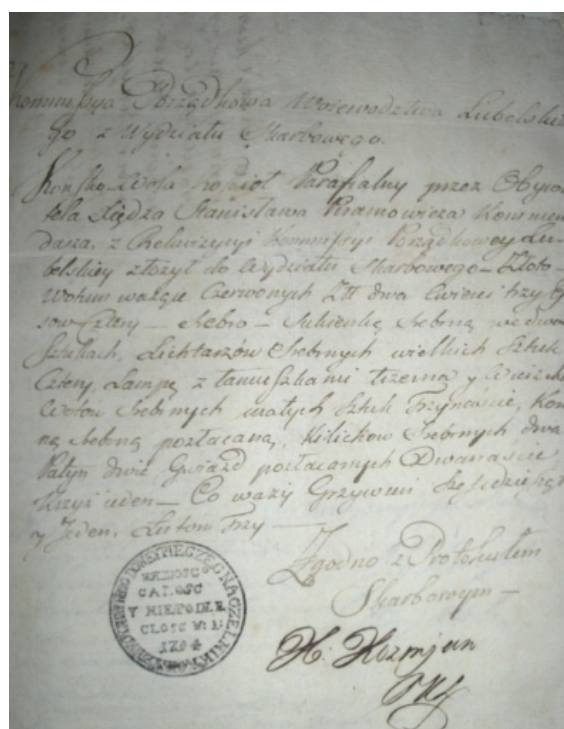 Kommissya Porządkowa Województwa Lubelskie
go z Wydziału Skarbowego.
Końsko Wola Parafialny przez Obywa
tela Xiędza Stanisława Piramowicza Kommen
darza, z Rekwizycyi Kommissyi Porządkowey Lu
belskiey złożył do Wydziału Skarbowego – Złoto –
Wotum ważące Czerwonych Złł dwa Ćwierci trzy
sow Cztery – Srebro – Sukienkę Srebrną we dwoch
Sztukach, Lichtarzów Srebrnych wielkich Sztuk
Cztery, Lampę z łancuszkami trzema y
Wotów Srebrnych małych Sztuk Trzynaście, Koro
nę Srebrną pozłacaną, Kilickow Srebrnych dwa
Patyn dwie Gwiazd pozłacanych Dwanascie
Krzyż ieden – Co waży Grzywien Sześcdziesiąt
y Jeden, Łutow Trzy –
Zgodno z Protokułem
Skarbowym –
H. Kozmjan
WOLNOSC
CAŁOSC
Y NIEPODLE
GŁOSC
1794